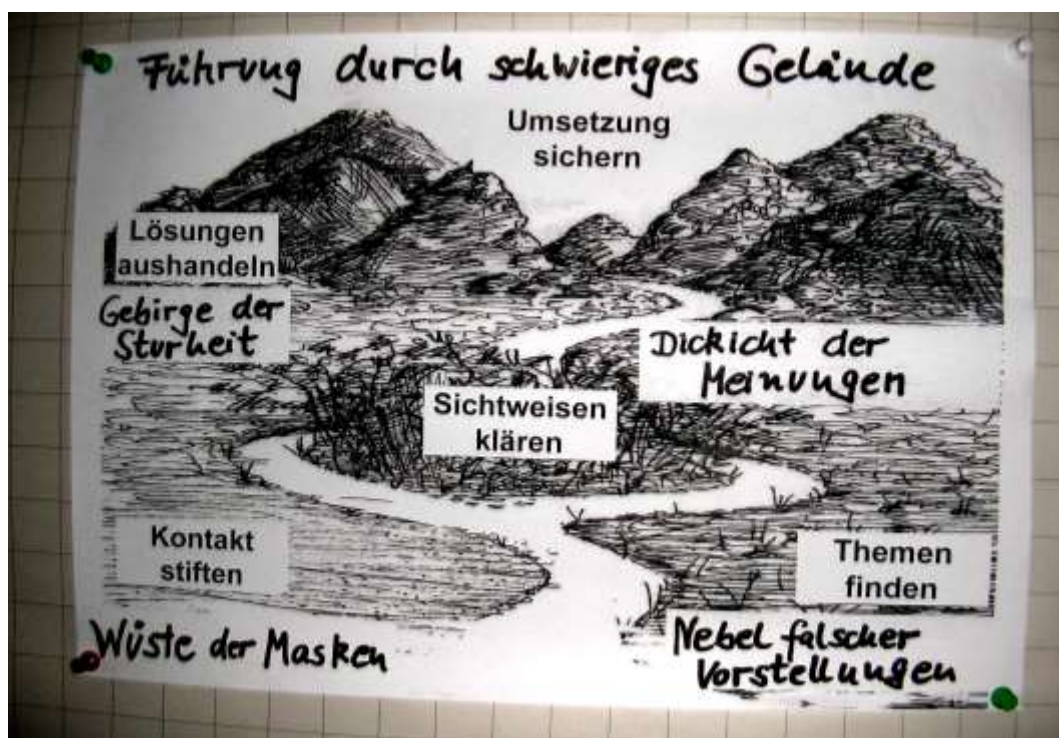 Führung durch schwieriges Gelände
Umsetzung
sichern
Lösungen
aushandeln
Gebirge der
Sturheit
Dickicht der
Meinungen
Sichtweisen
klären
Kontakt
stiften
Themen
finden
Wüste der Masken
Nebel falscher
Vorstellungen